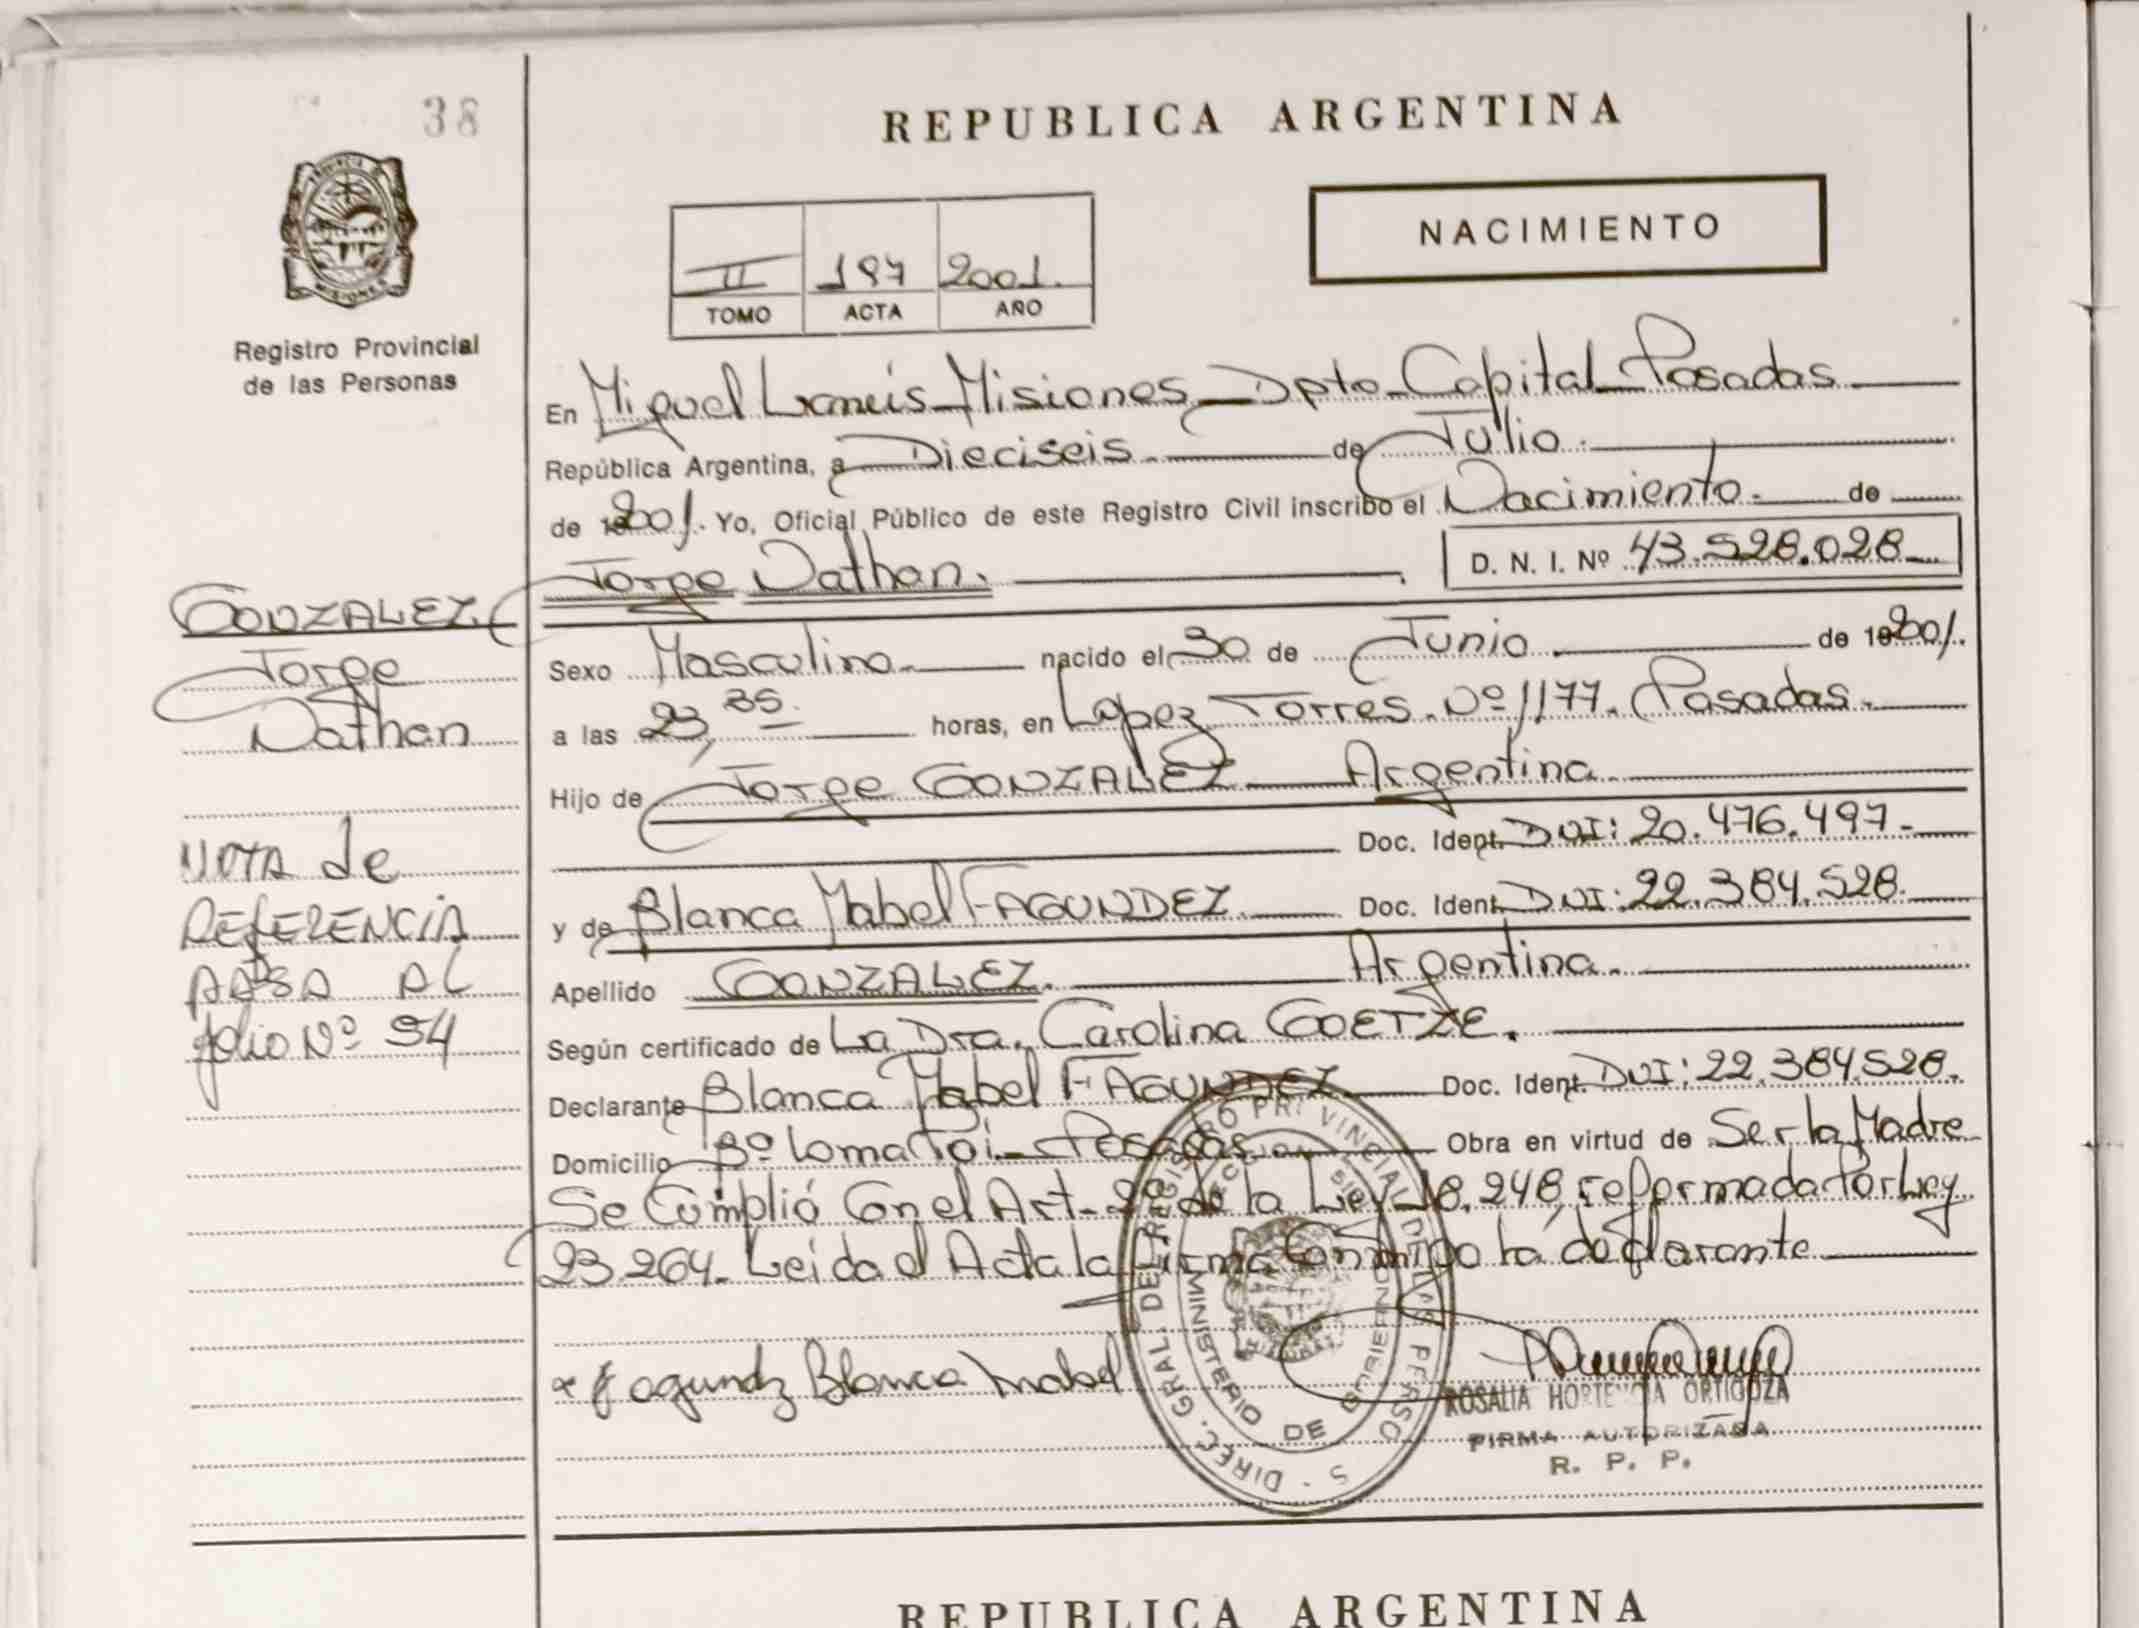 38
REPUBLICA ARGENTINA
NACIMIENTO
II 197 2001.
TOMO ACTA AÑO
PROVINCIA DE
MISIONES
Registro Provincial
de las Personas
En Miguel Lanús Misiones, Dpto Capital Posadas
República Argentina, a Dieciseis. de Julio.
de 2001. Yo, Oficial Público de este Registro Civil inscribo el Nacimiento. de
Jorge Nathan. D. N. I. Nº 43.528.028
GONZALEZ
Jorge
Nathan
Sexo Masculino nacido el 30 de Junio. de 2001.
a las 23,35 horas, en López Torres. Nº 1177. Posadas.
Hijo de Jorge GONZALEZ Argentina.
Doc. Ident. DNI: 20.476.497.-
y de Blanca Mabel FAGUNDEZ. Doc. Ident. DNI: 22.384.528.
Apellido GONZALEZ. Argentina.
Según certificado de La Dra. Carolina GOETZE.
Declarante Blanca Mabel FAGUNDEZ Doc. Ident. DNI: 22.384.528.
Domicilio Bº Loma Poi - Posadas. Obra en virtud de Ser la Madre
Se Cumplió Con el Art- 2º de la Ley 18.248, reformada Por Ley
23.264. Leida el Acta la Firma Conmigo la declarante
NOTA de
REFERENCIA
PASA AL
folio Nº 94
Fagundz Blanca Mabel
DIREC. GRAL. DEL REGISTRO PROVINCIAL DE LAS PERSONAS
MINISTERIO DE GOBIERNO
ROSALIA HORTENCIA ORTIGOZA
FIRMA AUTORIZADA
R. P. P.
REPUBLICA ARGENTINA